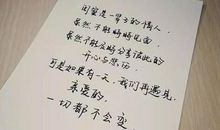 闺蜜是一辈子的情人,
虽然不能時時见面
虽然不能及時分享彼此的
开心与悲伤
可是如果有一天,我们再遇见,
亲爱的,
一切都不会变